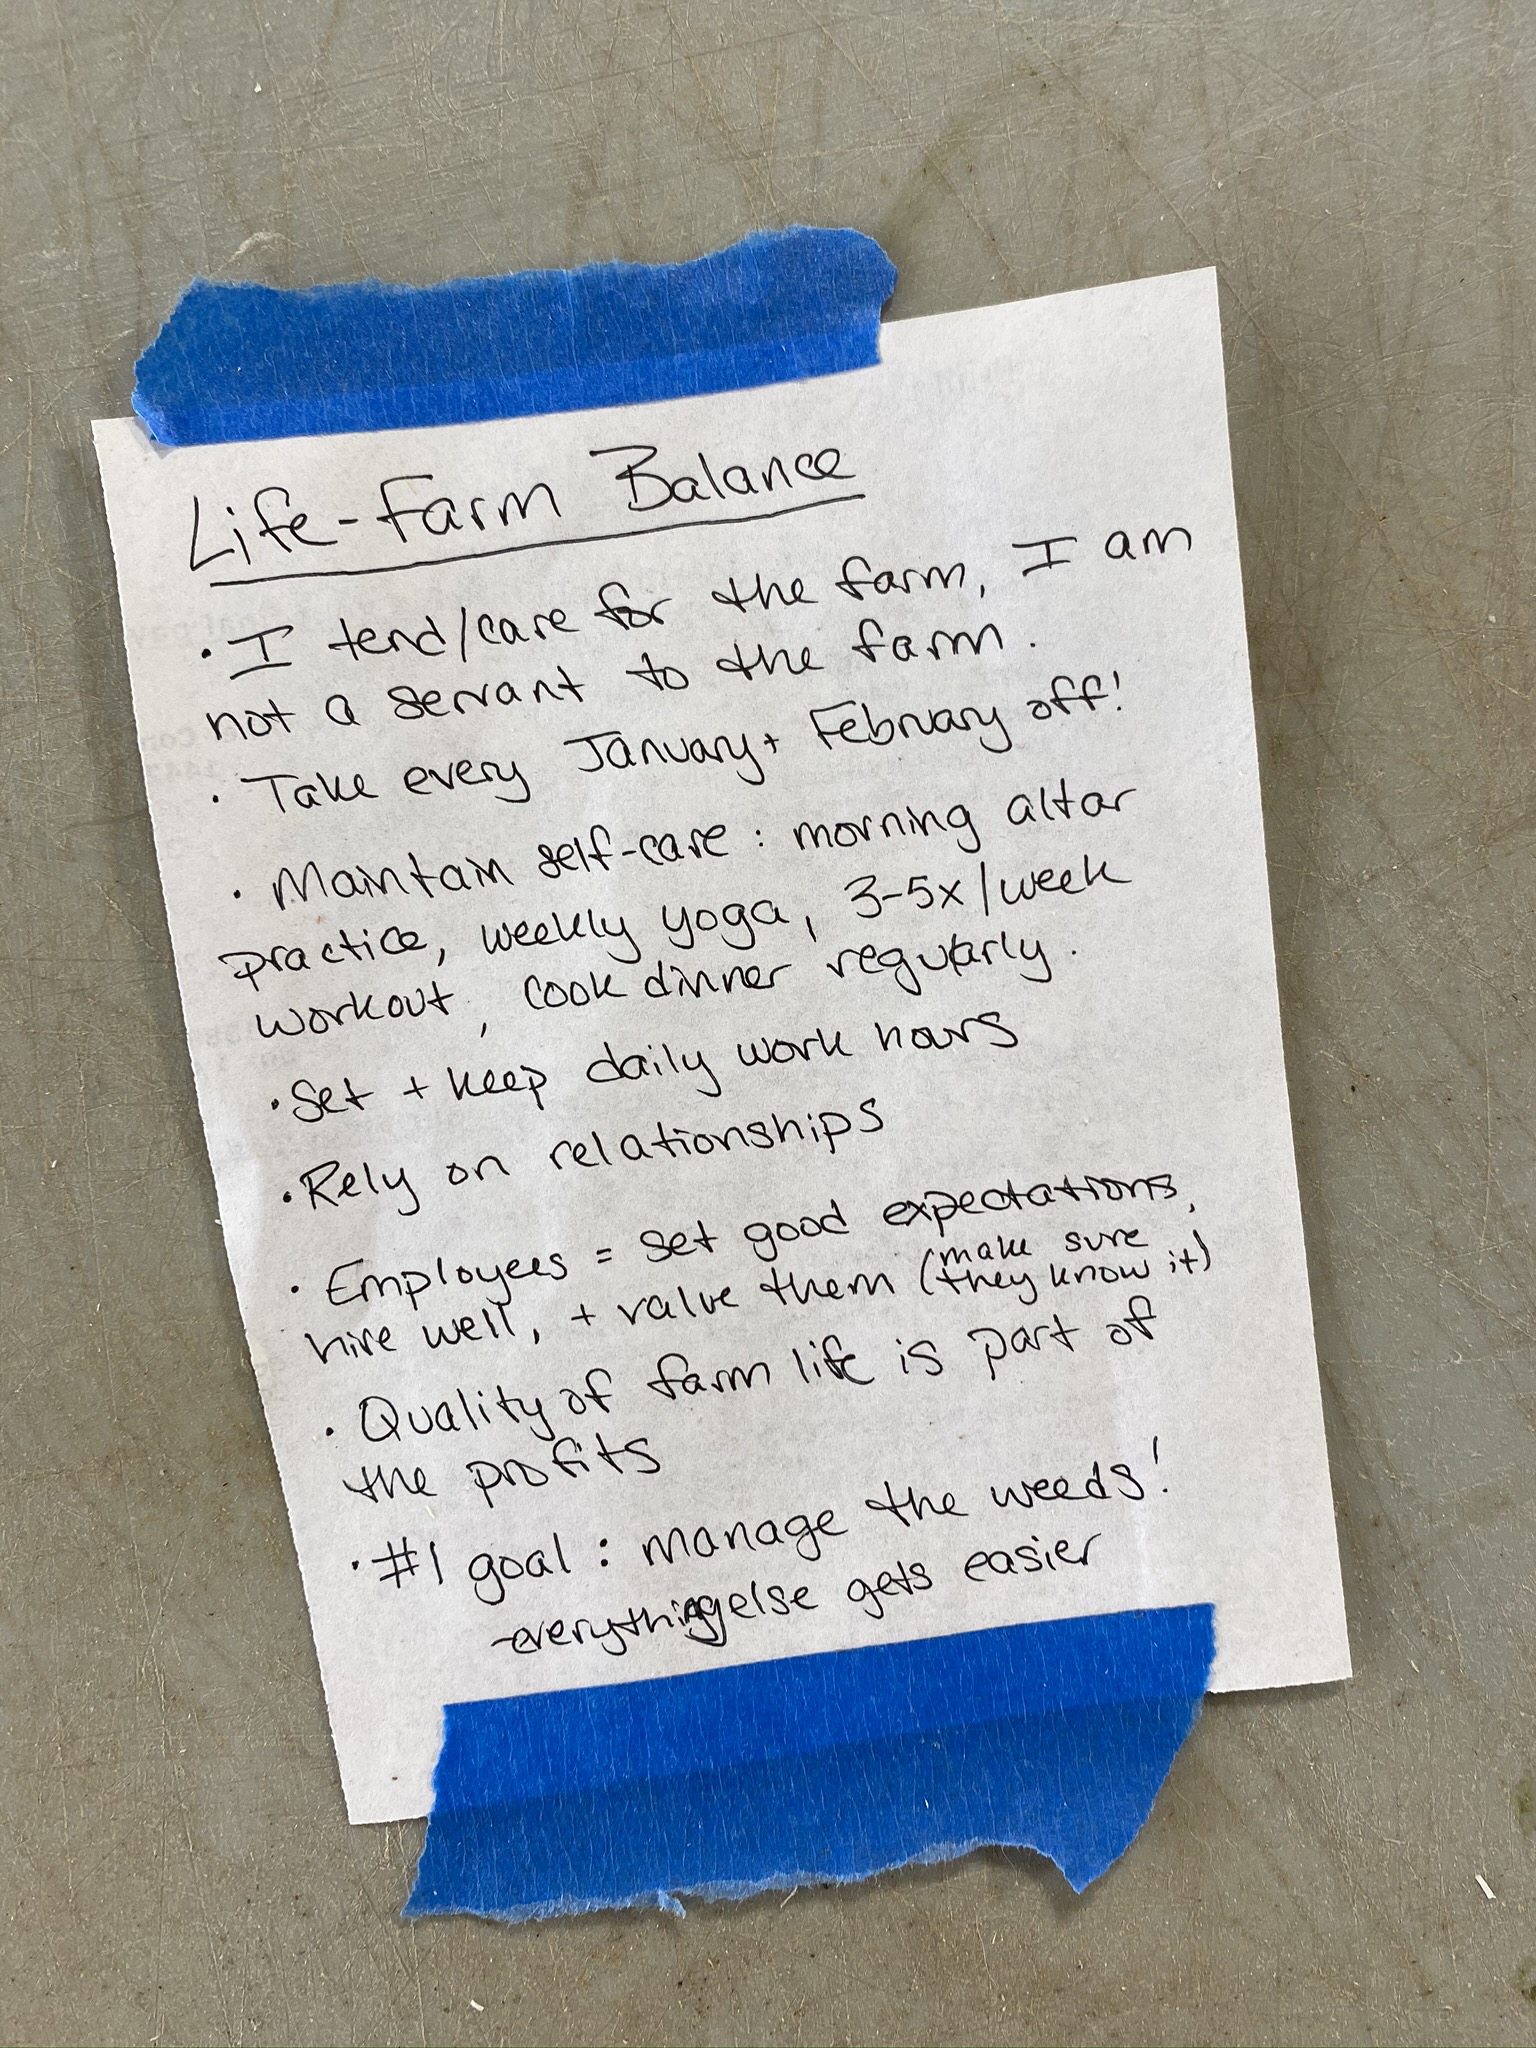 Life-Farm Balance
• I tend/care for the farm, I am
not a servant to the farm.
• Take every January + February off!
• Maintain self-care: morning altar
practice, weekly yoga, 3-5x/week
workout, cook dinner regularly.
• Set + keep daily work hours
• Rely on relationships
• Employees = set good expectations,
hire well, + value them (make sure
they know it)
• Quality of farm life is part of
the profits
• #1 goal: manage the weeds!
- everything else gets easier